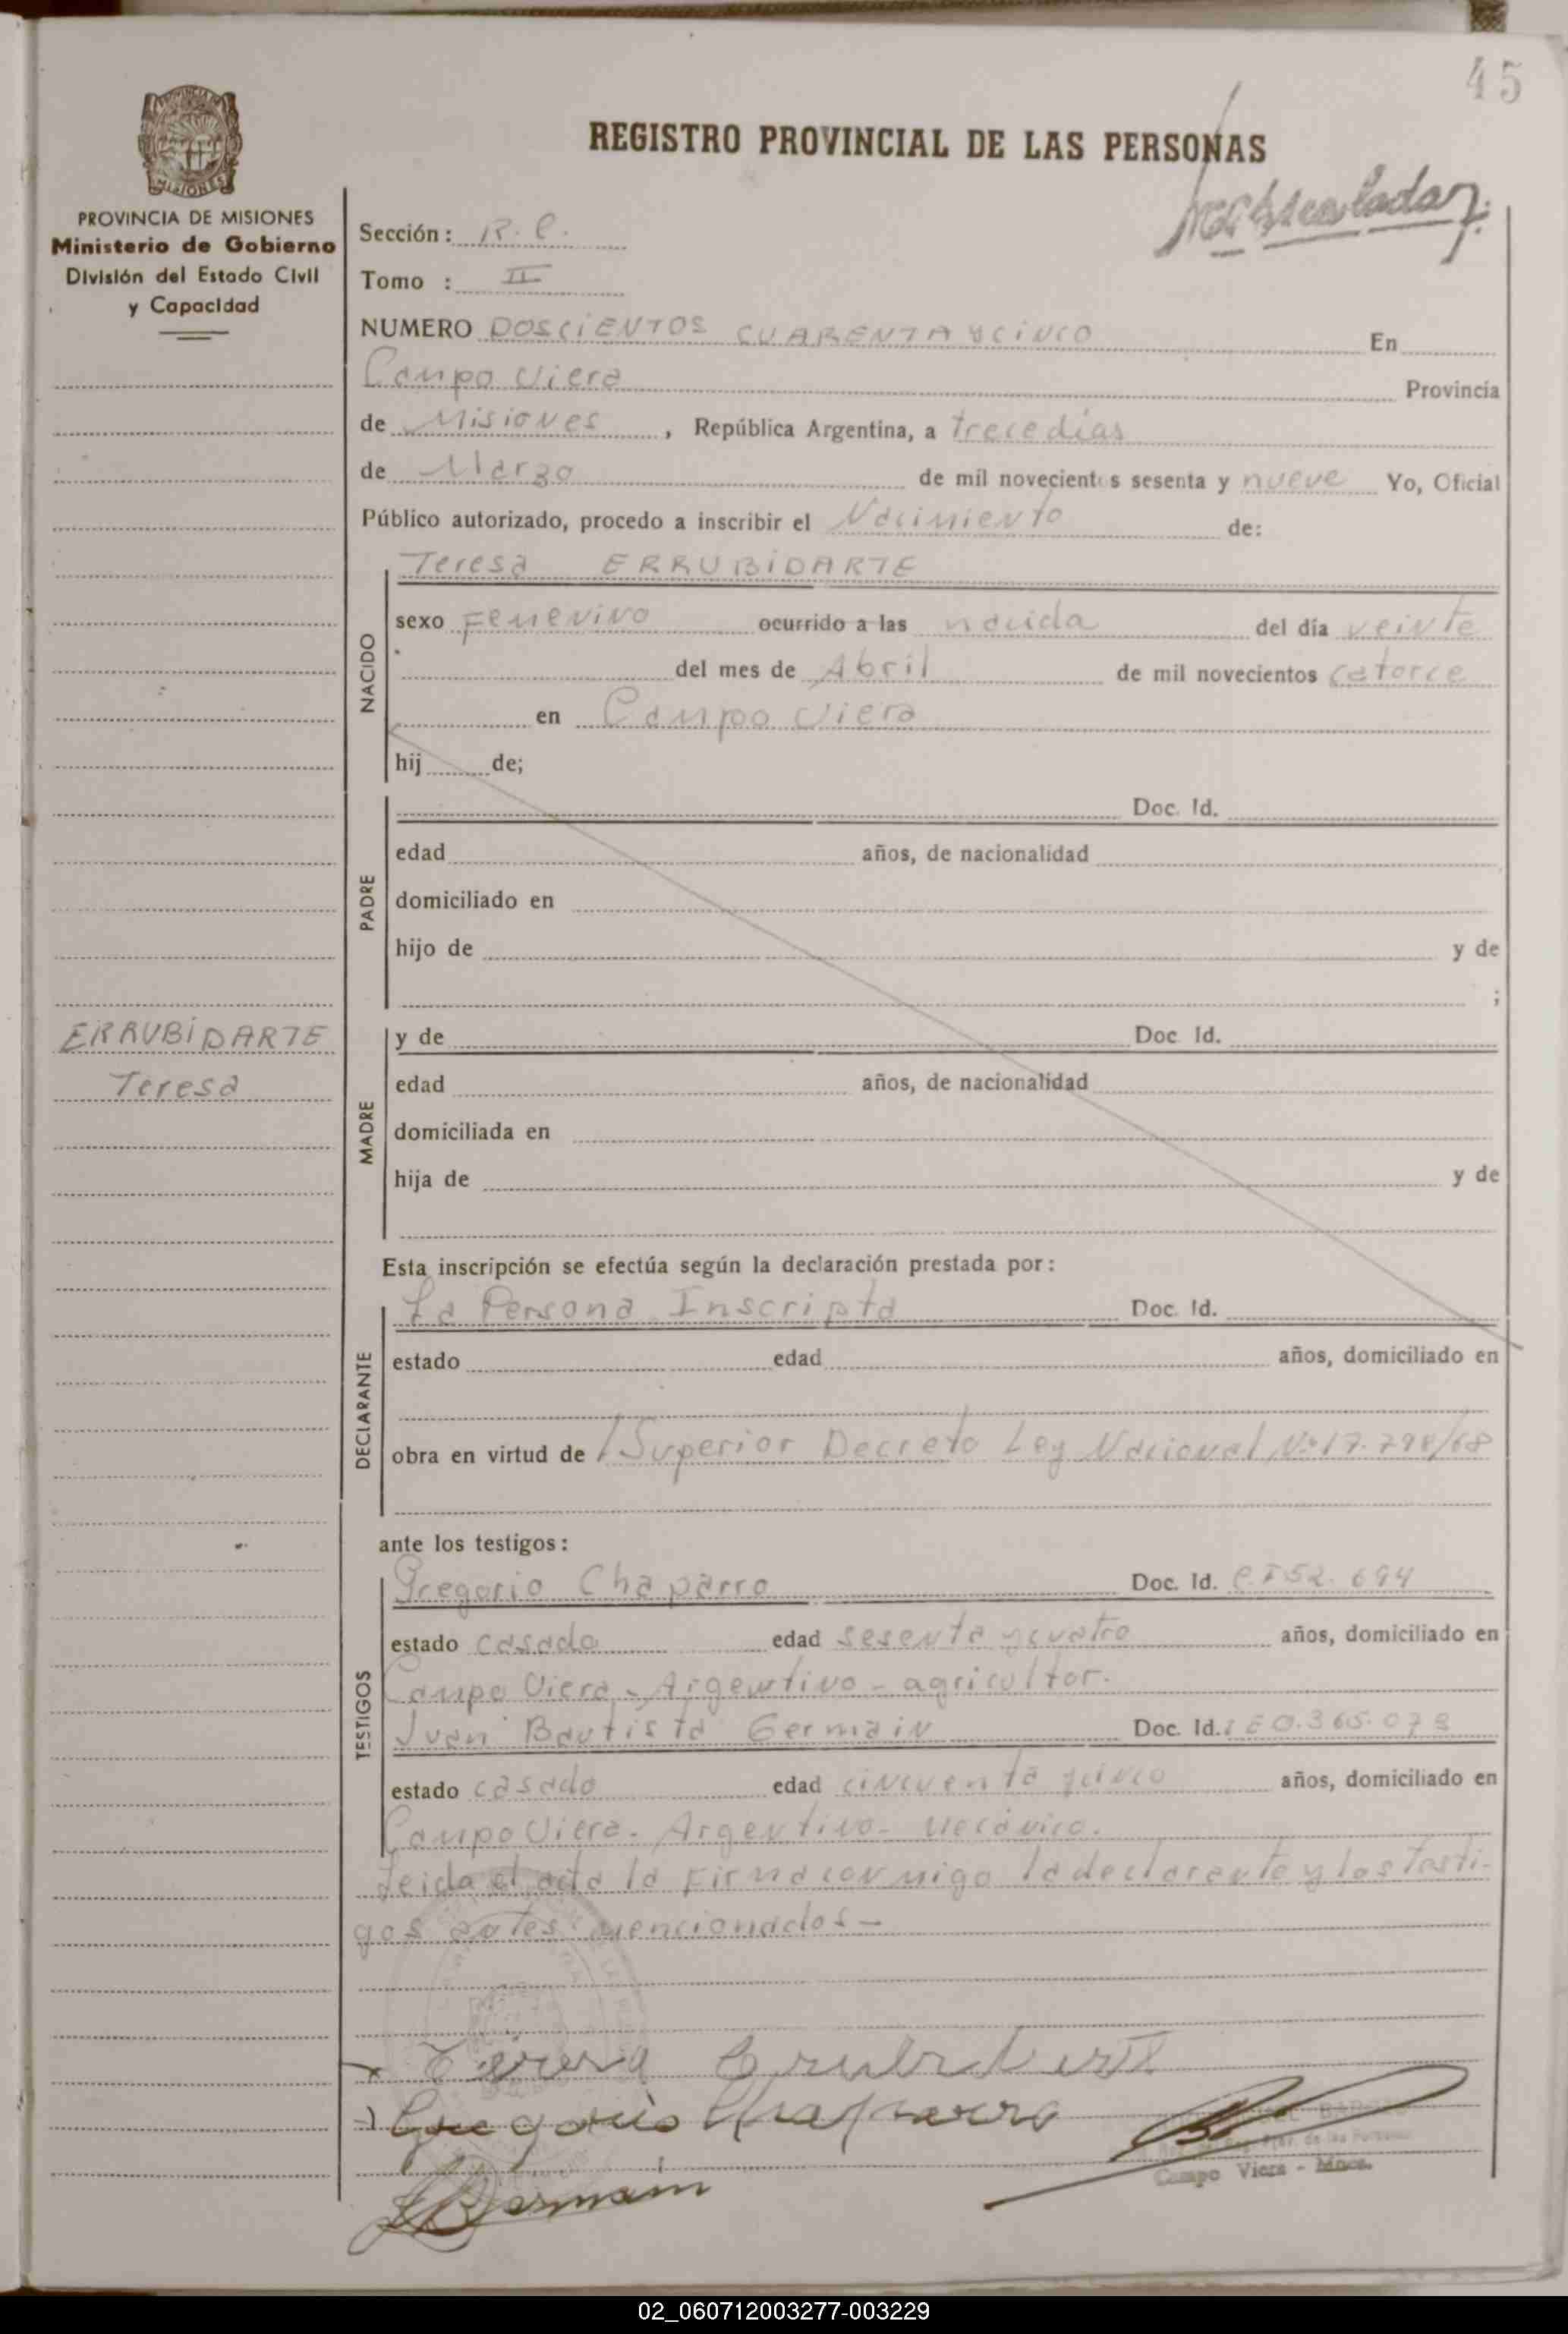 45
REGISTRO PROVINCIAL DE LAS PERSONAS
PROVINCIA DE MISIONES
Ministerio de Gobierno
División del Estado Civil
y Capacidad
Sección: R. C.
Tomo : II
NUMERO DOSCIENTOS CUARENTA Y CINCO En
Campo Viera Provincia
de Misiones, República Argentina, a trece días
de Marzo de mil novecientos sesenta y nueve Yo, Oficial
Público autorizado, procedo a inscribir el Nacimiento de:
Teresa ERRUBIDARTE
NACIDO
sexo Femenino ocurrido a las nacida del día veinte
del mes de Abril de mil novecientos catorce
en Campo Viera
hij de;
PADRE
Doc. Id.
edad años, de nacionalidad
domiciliado en
hijo de y de
;
ERRUBIDARTE
Teresa
MADRE
y de Doc Id.
edad años, de nacionalidad
domiciliada en
hija de y de
Esta inscripción se efectúa según la declaración prestada por:
DECLARANTE
La Persona Inscripta Doc. Id.
estado edad años, domiciliado en
obra en virtud de / Superior Decreto Ley Nacional Nº 17.798/68
ante los testigos:
TESTIGOS
Gregorio Chaparro Doc. Id. 52.694
estado casado edad sesenta y cuatro años, domiciliado en
Campo Viera - Argentino - agricultor.
Juan Bautista Germain Doc. Id. 0.365.073
estado casado edad cincuenta y cinco años, domiciliado en
Campo Viera - Argentino - Mecánico.
Leida el acta la Firma conmigo la declarante y los testi-
gos antes mencionados -
Teresa
Gregorio Chaparro
Germain
Campo Viera - Mnes.
02_060712003277-003229